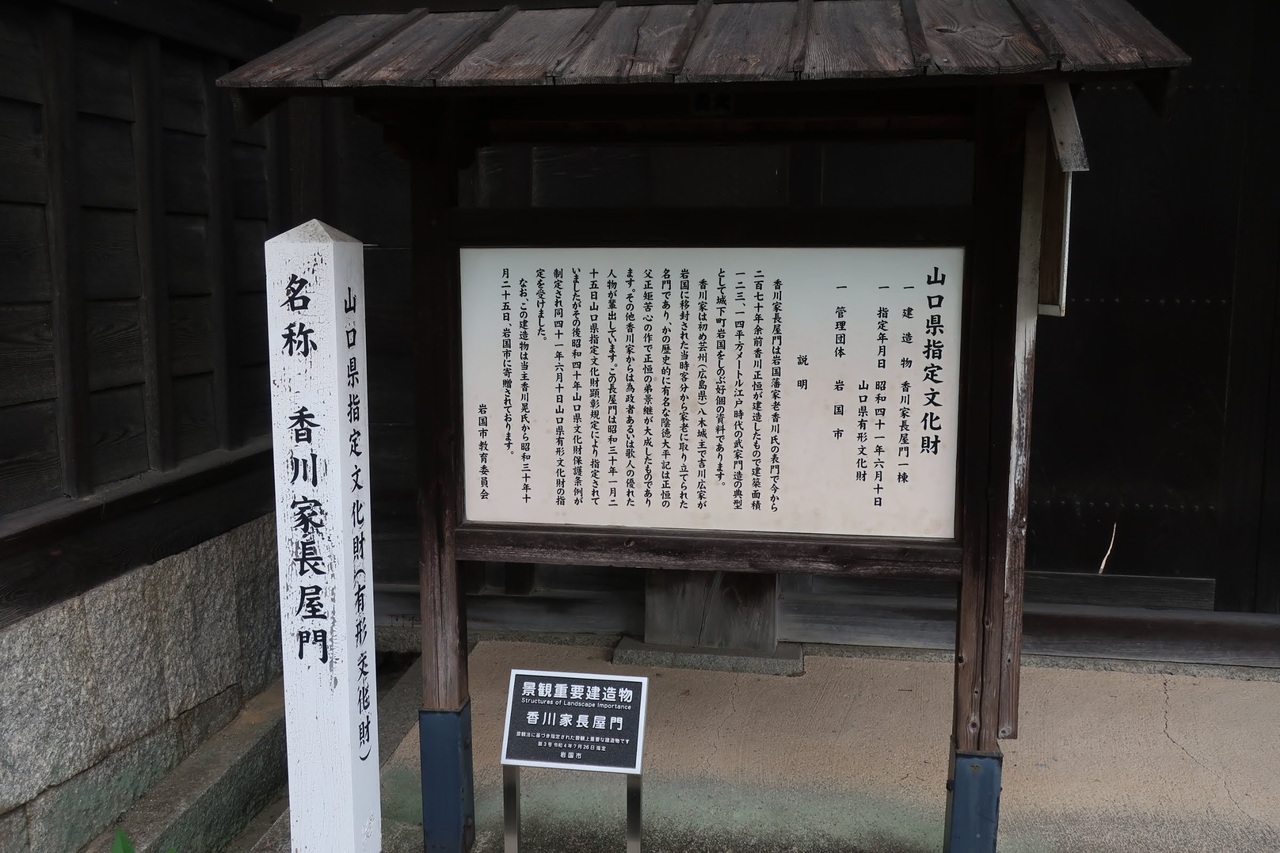 山口県指定文化財
一 建造物 香川家長屋門一棟
一 指定年月日 昭和四十一年六月十日
山口県有形文化財
一 管理団体 岩国市
説明
香川家長屋門は岩国藩家老香川氏の表門で今から
二百七十年余前香川正恒が建造したもので建築面積
一二三、一四平方メートル江戸時代の武家門造の典型
として城下町岩国をしのぶ好個の資料であります。
香川家は初め芸州(広島県)八木城主で吉川広家が
岩国に移封された当時客分から家老に取り立てられた
名門であり、かの歴史的に有名な陰徳太平記は正恒の
父正矩苦心の作で正恒の弟景継が大成したものであり
ます。その他香川家からは為政者あるいは歌人の優れた
人物が輩出しています。この長屋門は昭和三十年一月二
十五日山口県指定文化財顕彰規定により指定されて
いましたがその後昭和四十年山口県文化財保護条例が
制定され同四十一年六月十日山口県有形文化財の指
定を受けました。
なお、この建造物は当主香川晃氏から昭和三十年十
月二十五日、岩国市に寄贈されております。
岩国市教育委員会
山口県指定文化財(有形文化財)
名称 香川家長屋門
景観重要建造物
Structures of Landscape Importance
香川家長屋門
景観法に基づき指定された景観上重要な建造物です
第3号 令和4年7月26日指定
岩国市